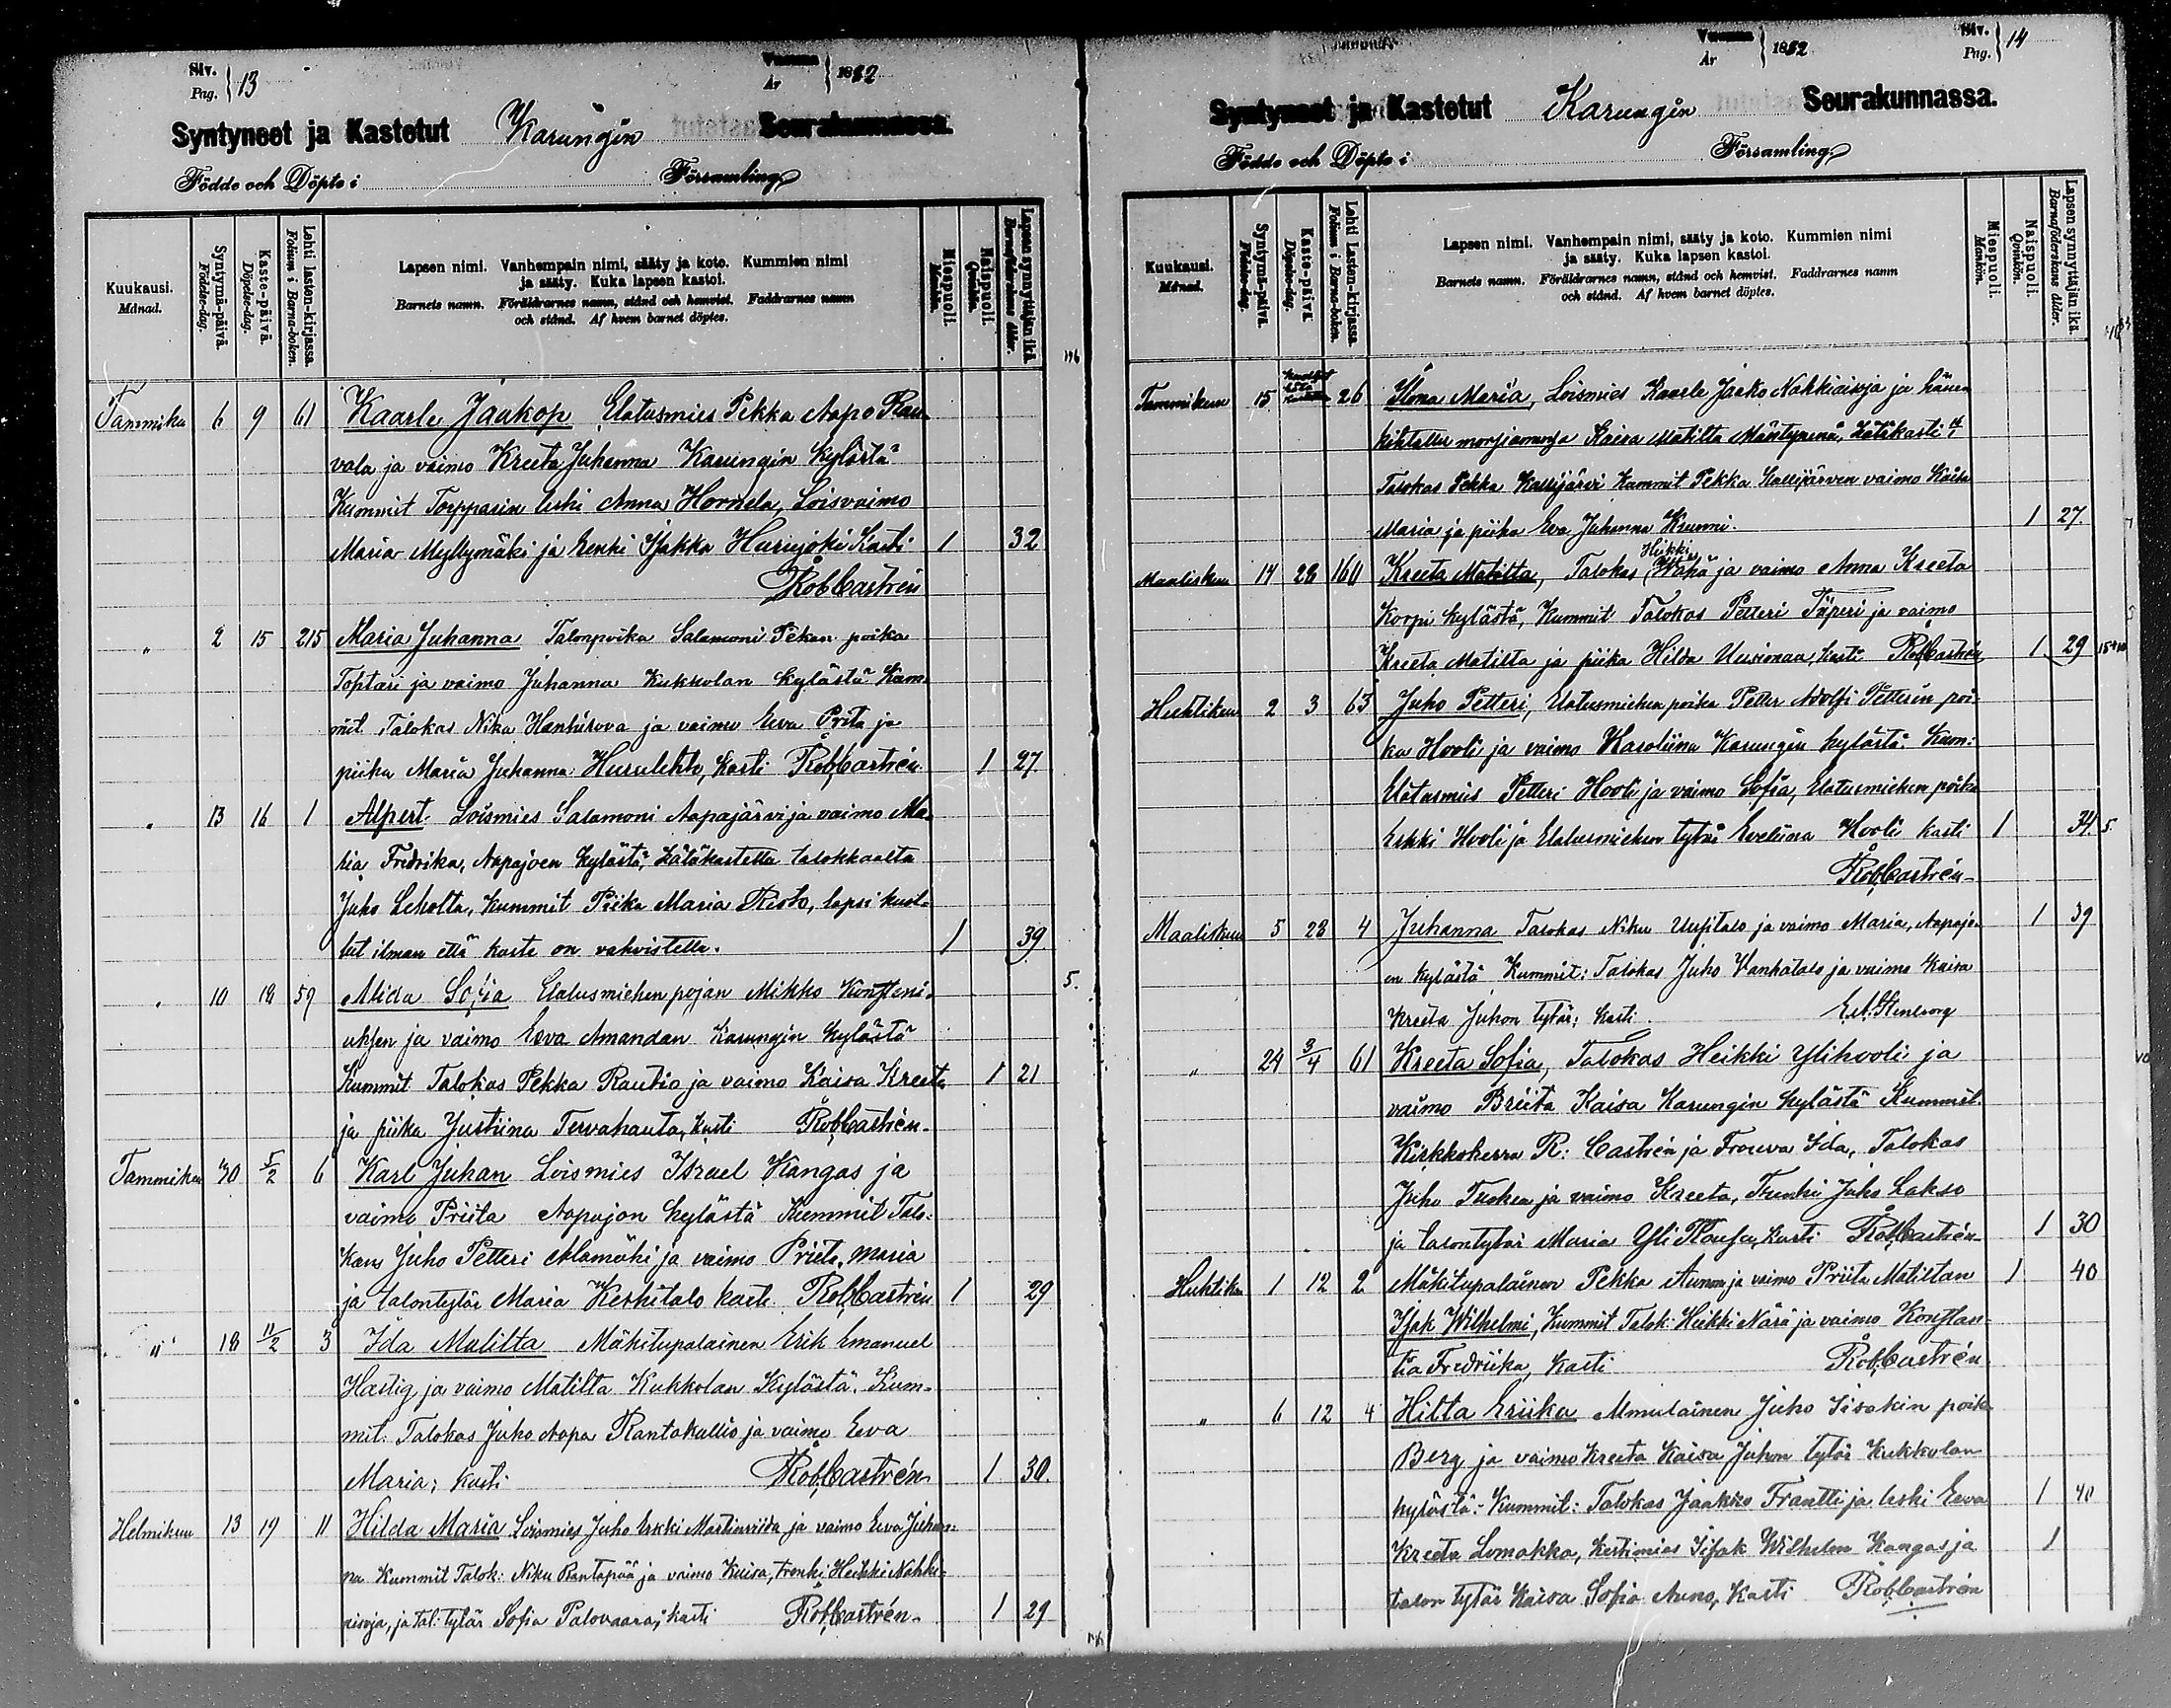 Siv. Pag. } 13
Vuonna År } 1882
Syntyneet ja Kastetut Karungin Seurakunnassa.
Födde och Döpte i Församling
Kuukausi. Månad.
Syntymä-päivä. Födelse-dag.
Kaste-päivä. Döpelse-dag.
Lehti lasten-kirjassa. Folium i Barna-boken.
Lapsen nimi. Vanhempain nimi, sääty ja koto. Kummien nimi
ja sääty. Kuka lapsen kastoi.
Barnets namn. Föräldrarnes namn, stånd och hemvist. Faddrarnes namn
och stånd. Af hvem barnet döptes.
Miespuoli. Mankön.
Naispuoli. Qvinkön.
Lapsen synnyttäjän ikä. Barnaföderskans ålder.
Tammiku 6 9 61 Kaarle Jaakop Elatusmies Pekka Aapo Rau
vala ja vaimo Kreeta Juhanna Karungin kylästä
Kummit Torpparin leski Anna Hornela, Loisvaimo
Maria Myllymäki ja Renki Isakka Harujoki Kasti 1 32
Rob Castrén
" 2 15 215 Maria Juhanna Talonpoika Salamoni Pekan poika
Toptari ja vaimo Juhanna Kukkolan kylästä Kum-
mit Talokas Nika Hanhirova ja vaimo Eeva Prita ja
piika Maria Juhanna Husulehto, Kasti Rob,Castrén 1 27
" 13 16 1 Alpert. Loismies Salamoni Aapajärvi ja vaimo Ma-
ria Fredrika, Aapajoen kylästä, hätäkastettu talokkaalta
Juho Leholta, Kummit Piika Maria Risto, lapsi kuol-
lut ilman että kaste on vahvistettu. 1 39
" 10 18 59 Alida Sofia Elatusmiehen pojan Mikko Konsteni-
uksen ja vaimo Eeva Amandan Karungin kylästä
Kummit Talokas Pekka Rautio ja vaimo Kaisa Kreeta 1 21
ja piika Justiina Tervahauta, kasti Rob.Castrén-
Tammiku 30 5/2 6 Karl Juhan Loismies Israel Kangas ja
vaimo Priita Aapajon kylästä Kummit Talo-
kas Juho Petteri Alamäki ja vaimo Priita Maria
ja talontytär Maria Keskitalo kasti Rob,Castrén 1 29
" 18 11/2 3 Ida Matilta Mäkitupalainen Erik Emanuel
Hastig ja vaimo Matilta Kukkolan kylästä. Kum-
mit. Talokas Juho Aapa Rantakallio ja vaimo Eeva
Maria; kasti Rob,Castrén 1 30.
Helmikuu 13 19 11 Hilda Maria Loismies Juho Erkki Martinviida ja vaimo Eeva Juhan-
na Kummit Talok: Niku Rantapää ja vaimo Kaisa, trenki Heikki Nahki-
aisoja, ja tal: tytär Sofia Palovaara; kasti Rob,Castrén- 1 29
Vuonna År } 1882
Siv. Pag. } 14
Syntyneet ja Kastetut Karungin Seurakunnassa.
Födde och Döpte i Församling
Kuukausi. Månad.
Syntymä-päivä. Födelse-dag.
Kaste-päivä. Döpelse-dag.
Lehti Lasten-kirjassa. Folium i Barna-boken.
Lapsen nimi. Vanhempain nimi, sääty ja koto. Kummien nimi
ja sääty. Kuka lapsen kastoi.
Barnets namn. Föräldrarnes namn, stånd och hemvist. Faddrarnes namn
och stånd. Af hvem barnet döptes.
Miespuoli. Mankön.
Naispuoli. Qvinkön.
Lapsen synnyttäjän ikä. Barnaföderskans ålder.
Tammikuu 15 26 Ilona Maria, Loismies Kaarle Jaako Nahkiaisoja ja hänen
kihlattu morsiamensa Kaisa Matilta Mäntypenä, hätäkasti
Talokas Pekka Kallijärvi Kummit Pekka Kallijärven vaimo Kaisa
Maria ja piika Eva Juhanna Krunni. 1 27.
Maaliskuu 14 28 160 Kreeta Matilta, Talokas Heikki Wähä ja vaimo Anna Kreeta
Korpi kylästä, Kummit Talokas Petteri Täperi ja vaimo
Kreeta Matilta ja piika Hilda Uusimaa, kasti Rob,Castrén 1 29
Huhtikuu 2 3 63 Juho Petteri, Elatusmiehen poika Petter Adolfi Petterin poi-
ka Hooli ja vaimo Karoliina Karungin kylästä. Kum:
Elatusmies Petteri Hooli ja vaimo Sofia, Elatusmiehen poika
Erkki Hooli ja Elatusmiehen tytär Eveliina Hooli kasti 1 34.
Rob,Castrén-
Maaliskuu 5 28 4 Juhanna Talokas Niku Uusitalo ja vaimo Maria, Aapajo- 1 39
en kylästä Kummit: Talokas Juho Vanhatalo ja vaimo Kaisa
Kreeta Juhon tytär; kasti
" 24 3/4 61 Kreeta Sofia, Talokas Heikki Ylihooli ja
vaimo Briita Kaisa Karungin kylästä Kummit.
Kirkkoherra R: Castrén ja Frouva Ida, Talokas
Juho Tuohea ja vaimo Kreeta, Trenki Juho Lakso
ja talontytär Maria Yli Klausu, kasti Rob,Castrén- 1 30
Huhtiku 1 12 2 Mäkitupalainen Pekka Aunon ja vaimo Priita Matiltan 1 40
Isak Wilhelmi, Kummit Talok: Heikki Närä ja vaimo Konstan-
tia Fredriika, kasti Rob,Castrén
" 6 12 4 Hilta Eriika Muulainen Juho Iisakin poika
Berg ja vaimo Kreeta Kaisa Juhon tytär Kukkolan
kylästä. Kummit: Talokas Jaakko Frantti ja leski Eeva 1 40
Kreeta Lomakka, Kestimies Iisak Wilhelm Kangas ja 1
talon tytär Kaisa Sofia Auno, Kasti Rob,Castrén